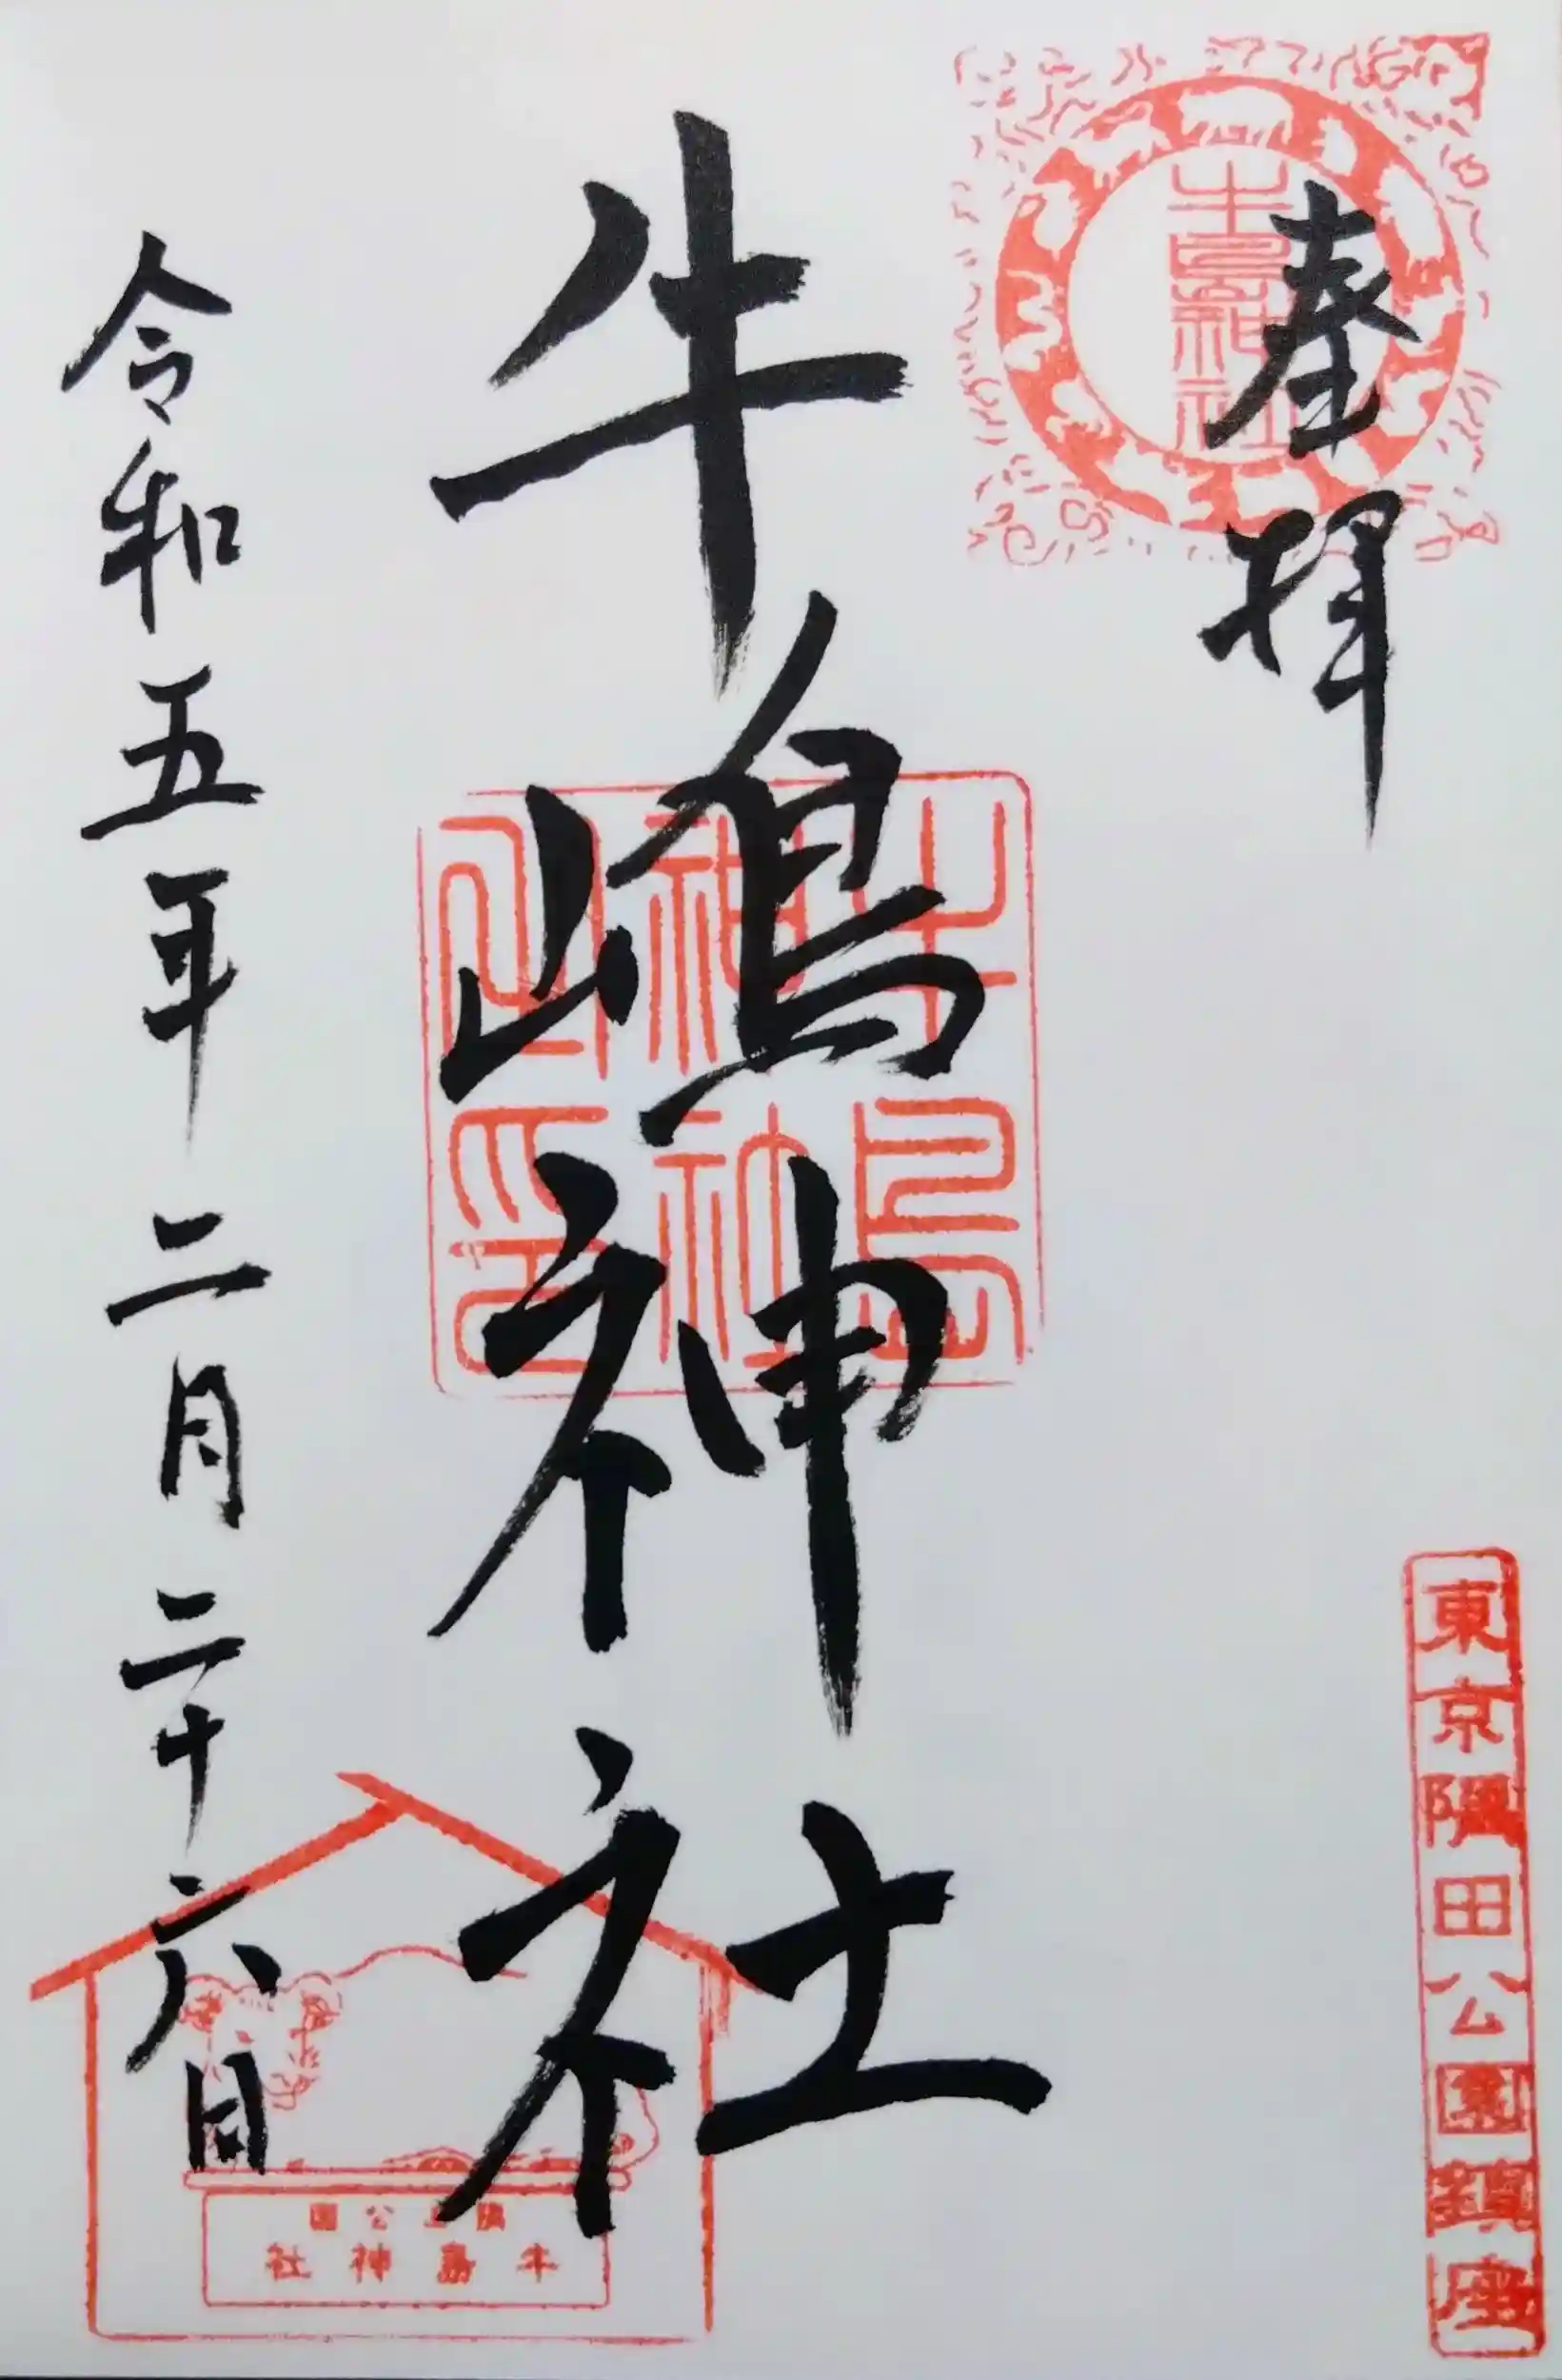 奉拝
牛島神社
東京隅田公園鎮座
牛嶋神社
牛島神社之印
令和五年二月二十六日
隅田公園
牛島神社